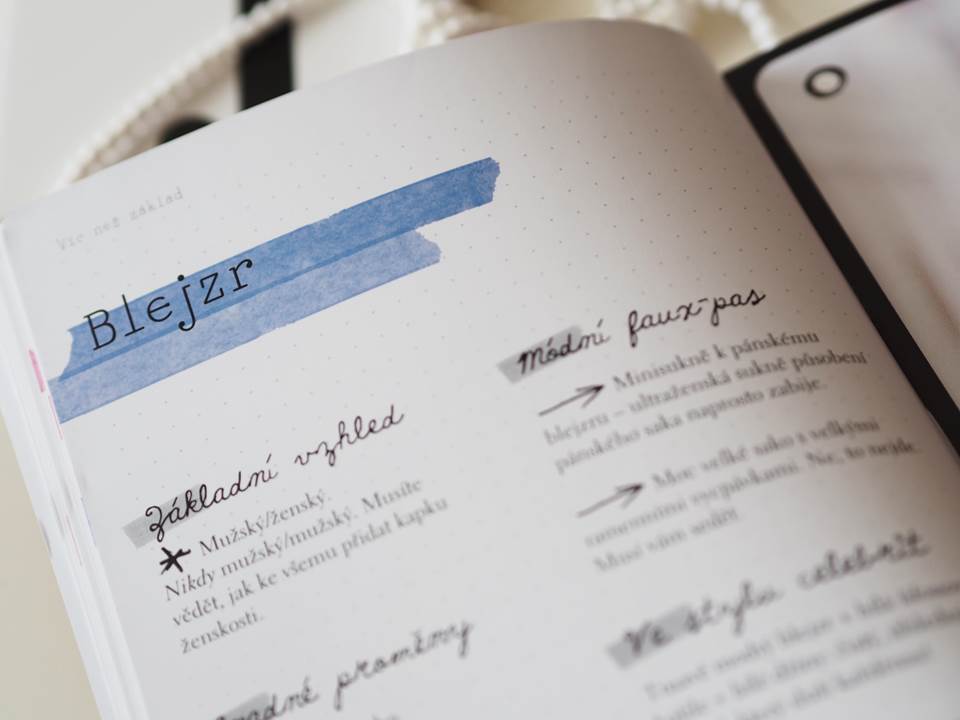 Víc než základ
Blejzr
Základní vzhled
Mužský/ženský.
Nikdy mužský/mužský. Musíte
vědět, jak ke všemu přidat kapku
ženskosti.
proměny
Módní faux-pas
Minisukně k pánskému
blejzru – ultraženská sukně působení
pánského saka naprosto zabije.
Moc velké sako s velkými
ramenními vycpávkami. Ne, to nejde.
Musí vám sedět.
Ve stylu celebrit